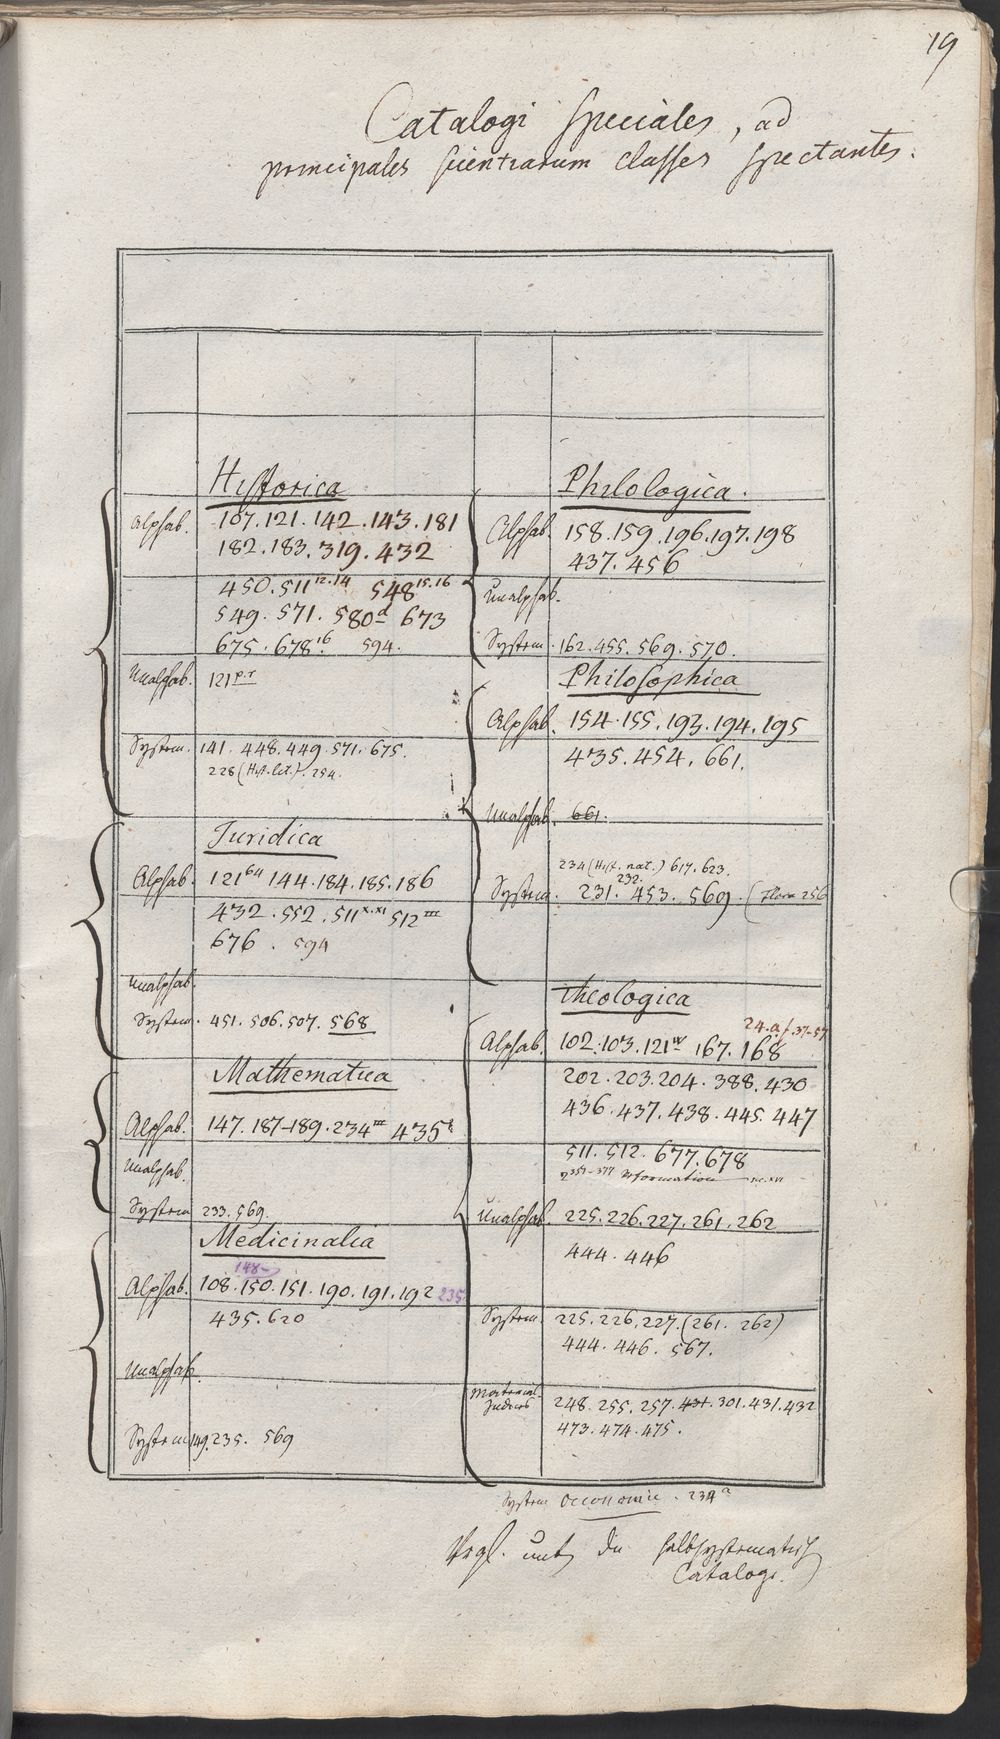 19
Catalogi speciales, ad
principales scientiarum classes spectantes.
Historica
Alphab. 107. 121. 142. 143. 181
182. 183. 319. 432
450. 511 12.14 548 15.16
549. 571. 580 d 673
675. 678 16 594.
Unalphab. 121 p.r
System. 141. 448. 449. 571. 675.
228 (Hist. lit.). 254.
Juridica
Alphab. 121 144. 184. 185. 186
432. 552. 511 X.XI 512 III
676. 594
Unalphab.
System. 451. 506. 507. 568
Mathematica
Alphab. 147. 187-189. 234 III 435
Unalphab.
System 233. 569.
Medicinalia
148-
Alphab. 108. 150. 151. 190. 191. 192 235
435. 620
Unalphab.
System 149. 235. 569
Philologica.
Alphab. 158. 159. 196. 197. 198
437. 456
Unalphab.
System. 162. 455. 569. 570.
Philosophica
Alphab. 154. 155. 193. 194. 195
435. 454. 661.
Unalphab. 661.
234 (Hist. nat.) 617. 623.
232.
System. 231. 453. 569. (Flora 256
Theologica
24. a/. 37-57
Alphab. 102. 103. 121 IV 167. 168
202. 203. 204. 388. 430
436. 437. 438. 445. 447
511. 512. 677. 678
357-377 Reformation
Unalphab. 225. 226. 227. 261. 262
444. 446
System. 225. 226. 227. (261. 262)
444. 446. 567.
Material-
Indices 248. 255. 257. 431. 301. 431. 432
473. 474. 475.
System Oeconomie. 234 a
Vrgl. unt. die halbsystematisch
Catalogi.